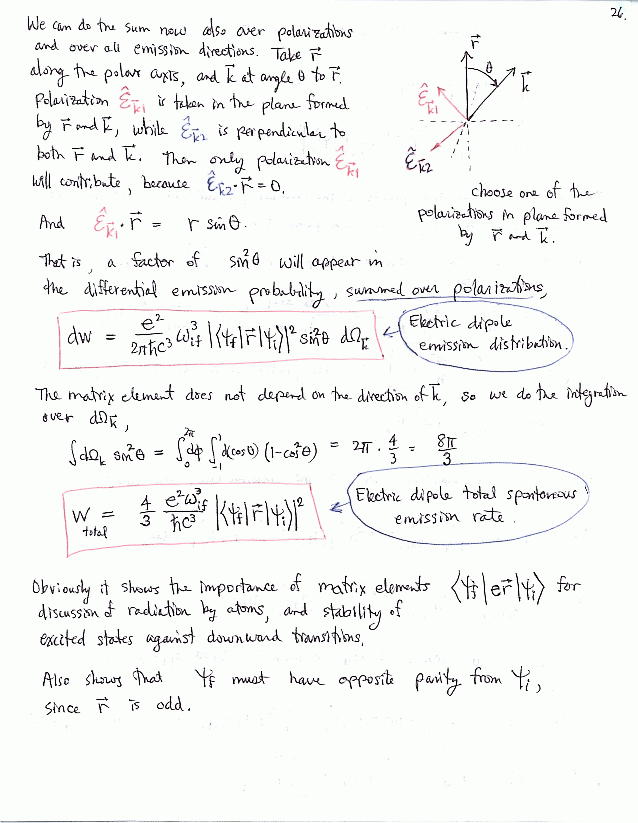 26.
We can do the sum now also over polarizations
and over all emission directions. Take r⃗
along the polar axis, and k⃗ at angle θ to r⃗.
Polarization ε̂_k⃗1 is taken in the plane formed
by r⃗ and k⃗, while ε̂_k⃗2 is perpendicular to
both r⃗ and k⃗. Then only polarization ε̂_k⃗1
will contribute, because ε̂_k⃗2 · r⃗ = 0.
And ε̂_k⃗1 · r⃗ = r sinθ.
r⃗
θ
k⃗
ε̂_k⃗1
ε̂_k⃗2
choose one of the
polarizations in plane formed
by r⃗ and k⃗.
That is, a factor of sin²θ will appear in
the differential emission probability, summed over polarizations,
dw = e²/2πħc³ ω³_if |⟨ψ_f|r⃗|ψ_i⟩|² sin²θ dΩ_k⃗
Electric dipole
emission distribution.
The matrix element does not depend on the direction of k⃗, so we do the integration
over dΩ_k⃗,
∫dΩ_k sin²θ = ∫₀^2π dφ ∫₋₁^1 d(cosθ) (1-cos²θ) = 2π · 4/3 = 8π/3
W_total = 4/3 e²ω³_if/ħc³ |⟨ψ_f|r⃗|ψ_i⟩|²
Electric dipole total spontaneous
emission rate.
Obviously it shows the importance of matrix elements ⟨ψ_f|er⃗|ψ_i⟩ for
discussion of radiation by atoms, and stability of
excited states against downward transitions.
Also shows that ψ_f must have opposite parity from ψ_i,
since r⃗ is odd.